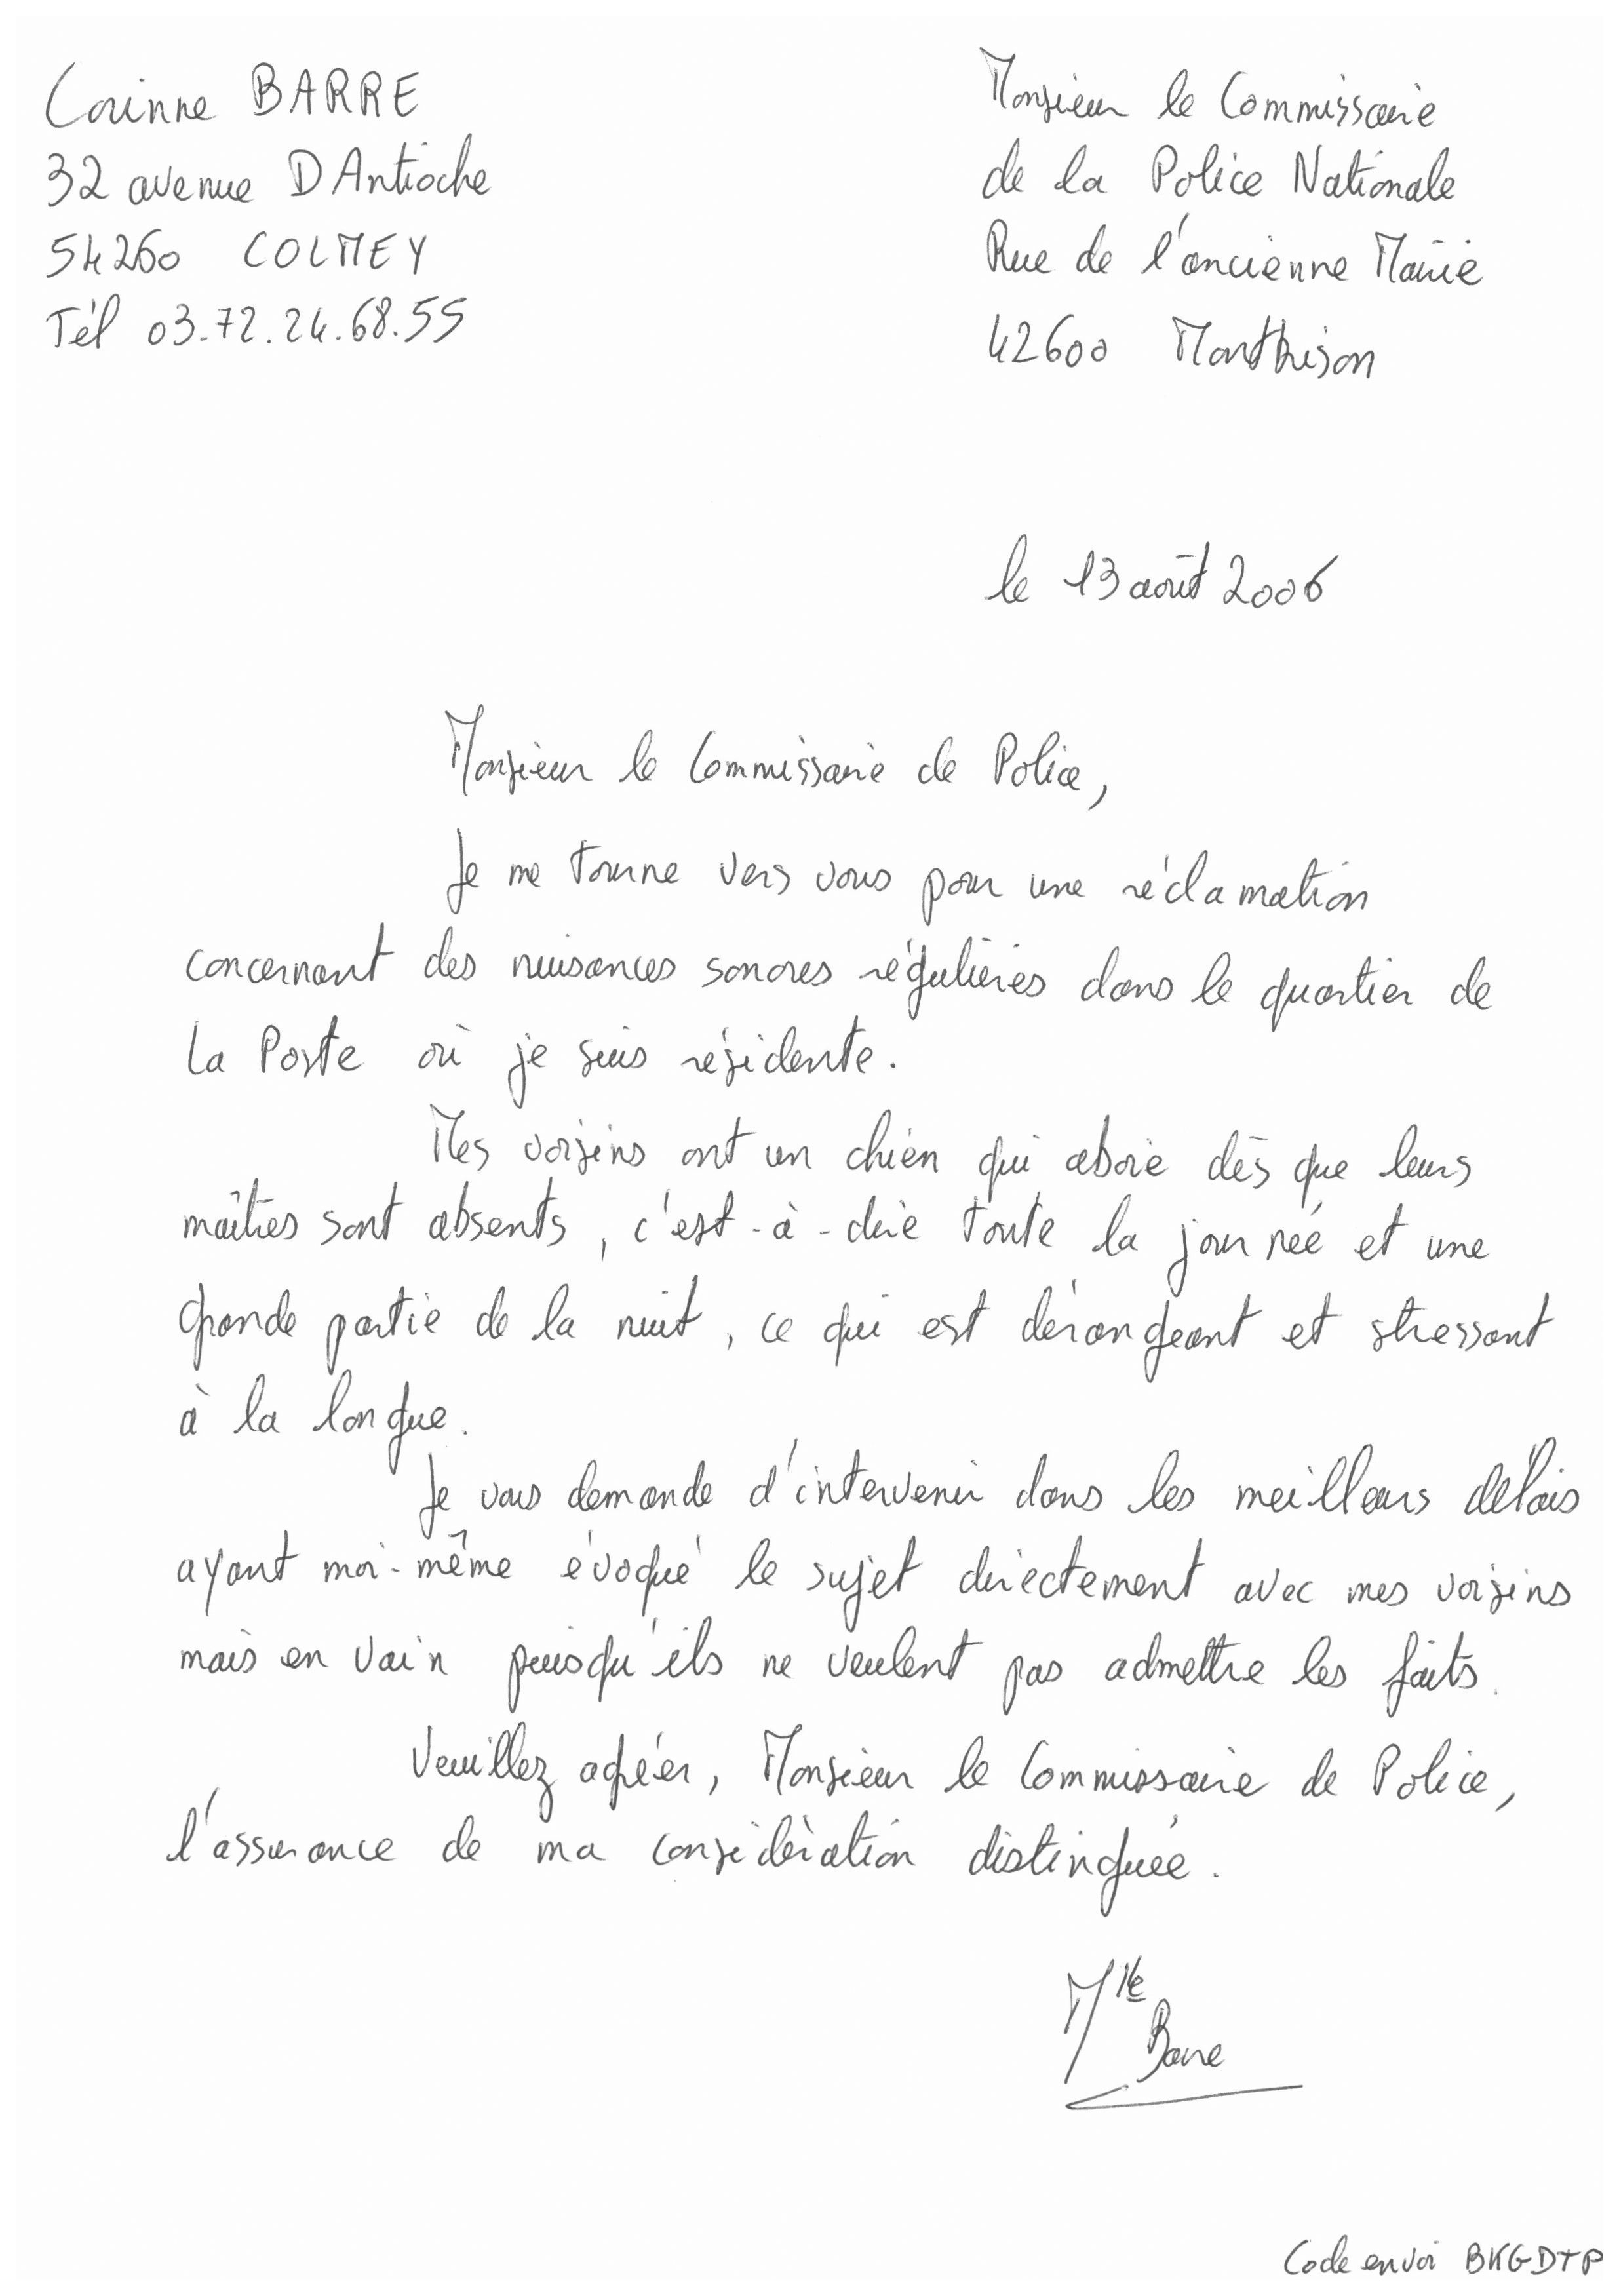 Corinne BARRE
32 avenue D Antioche
54260 COLMEY
Tél 03.72.24.68.55
Monsieur le Commissaire
de la Police Nationale
Rue de l'ancienne Mairie
42600 Montbrison
le 13 août 2006
Monsieur le Commissaire de Police,
Je me tourne vers vous pour une réclamation
concernant des nuisances sonores régulières dans le quartier de
La Poste où je suis résidente.
Mes voisins ont un chien qui aboie dès que leurs
maîtres sont absents, c'est-à-dire toute la journée et une
grande partie de la nuit, ce qui est dérangeant et stressant
à la longue.
Je vous demande d'intervenir dans les meilleurs délais
ayant moi-même évoqué le sujet directement avec mes voisins
mais en vain puisqu'ils ne veulent pas admettre les faits.
Veuillez agréer, Monsieur le Commissaire de Police,
l'assurance de ma considération distinguée.
Mlle
Barre
Code envoi BKGDTP